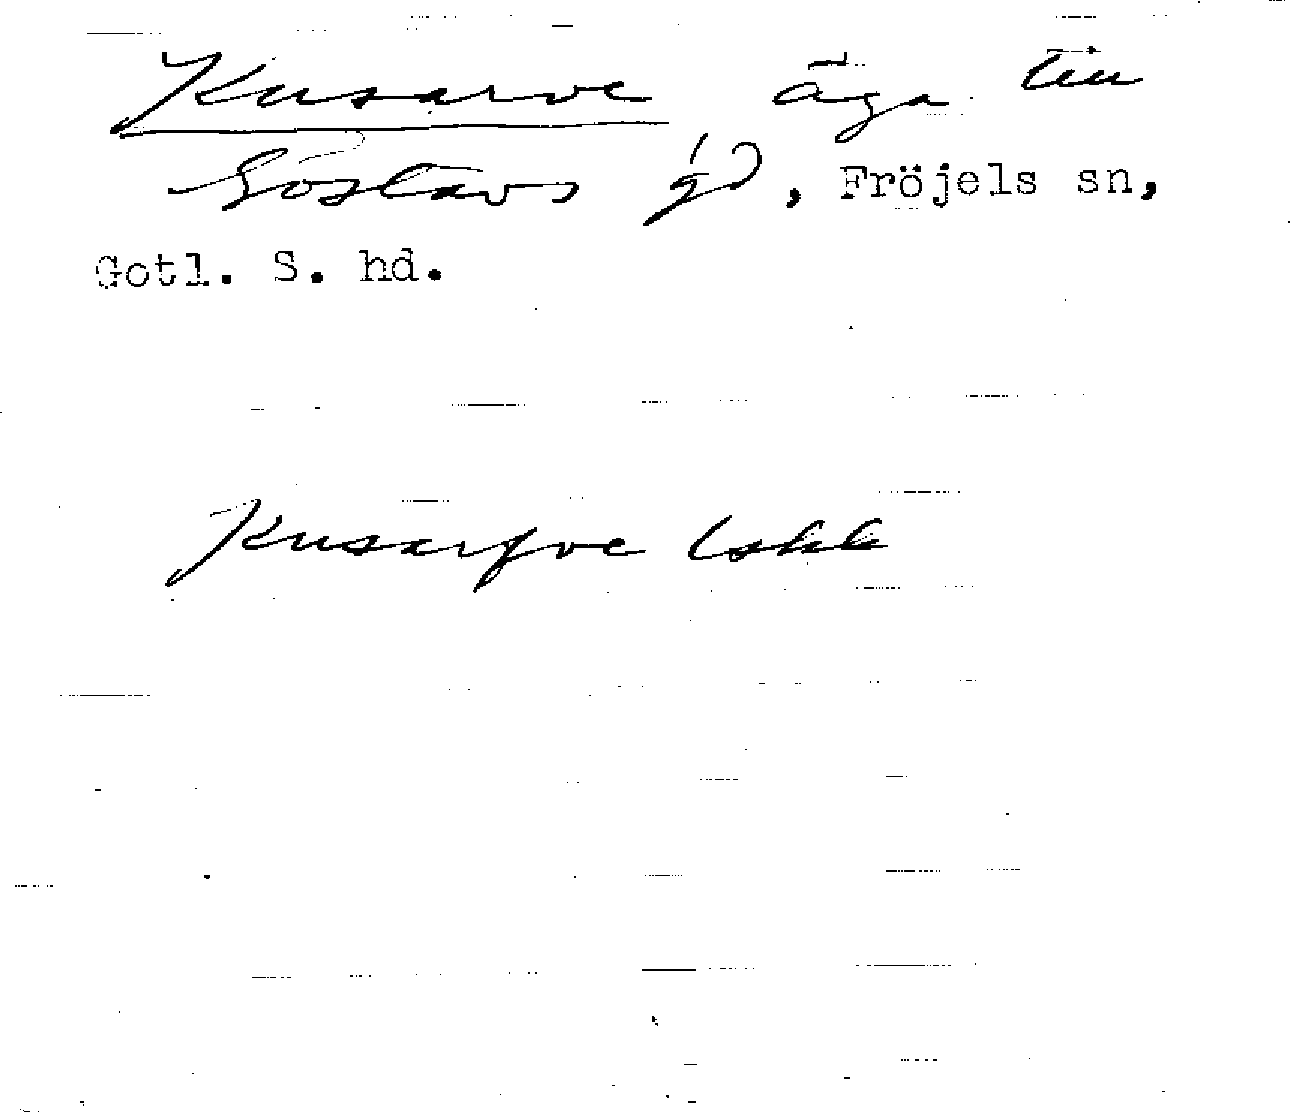 Kusarve äga till
Göstavs gd, Fröjels sn,
Gotl. S. hd.
Kusarfve Lskk